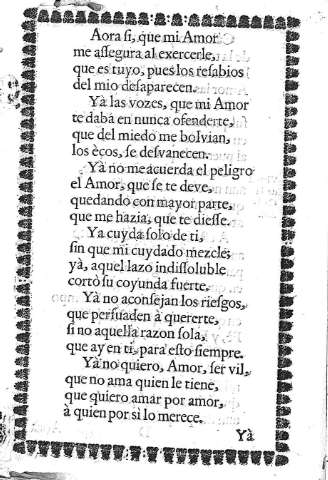 Aora si, que mi Amor
me assegura al exercerle,
que es tuyo, pues los resabios
del mio desaparecen.
Yà las vozes, que mi Amor
te daba en nunca ofenderte,
que del miedo me bolvian,
los ècos, se desvanecen.
Yà no me acuerda el peligro
el Amor, que se te deve,
quedando con mayor parte,
que me hazia, que te diesse.
Ya cuyda solo de ti,
sin que mi cuydado mezcle;
yà, aquel lazo indissoluble
cortò su coyunda fuerte.
Yà no aconsejan los riesgos,
que persuaden à quererte,
si no aquella razon sola,
que ay en ti, para esto siempre.
Yà no quiero, Amor, ser vil,
que no ama quien le tiene,
que quiero amar por amor,
à quien por si lo merece.
Yà